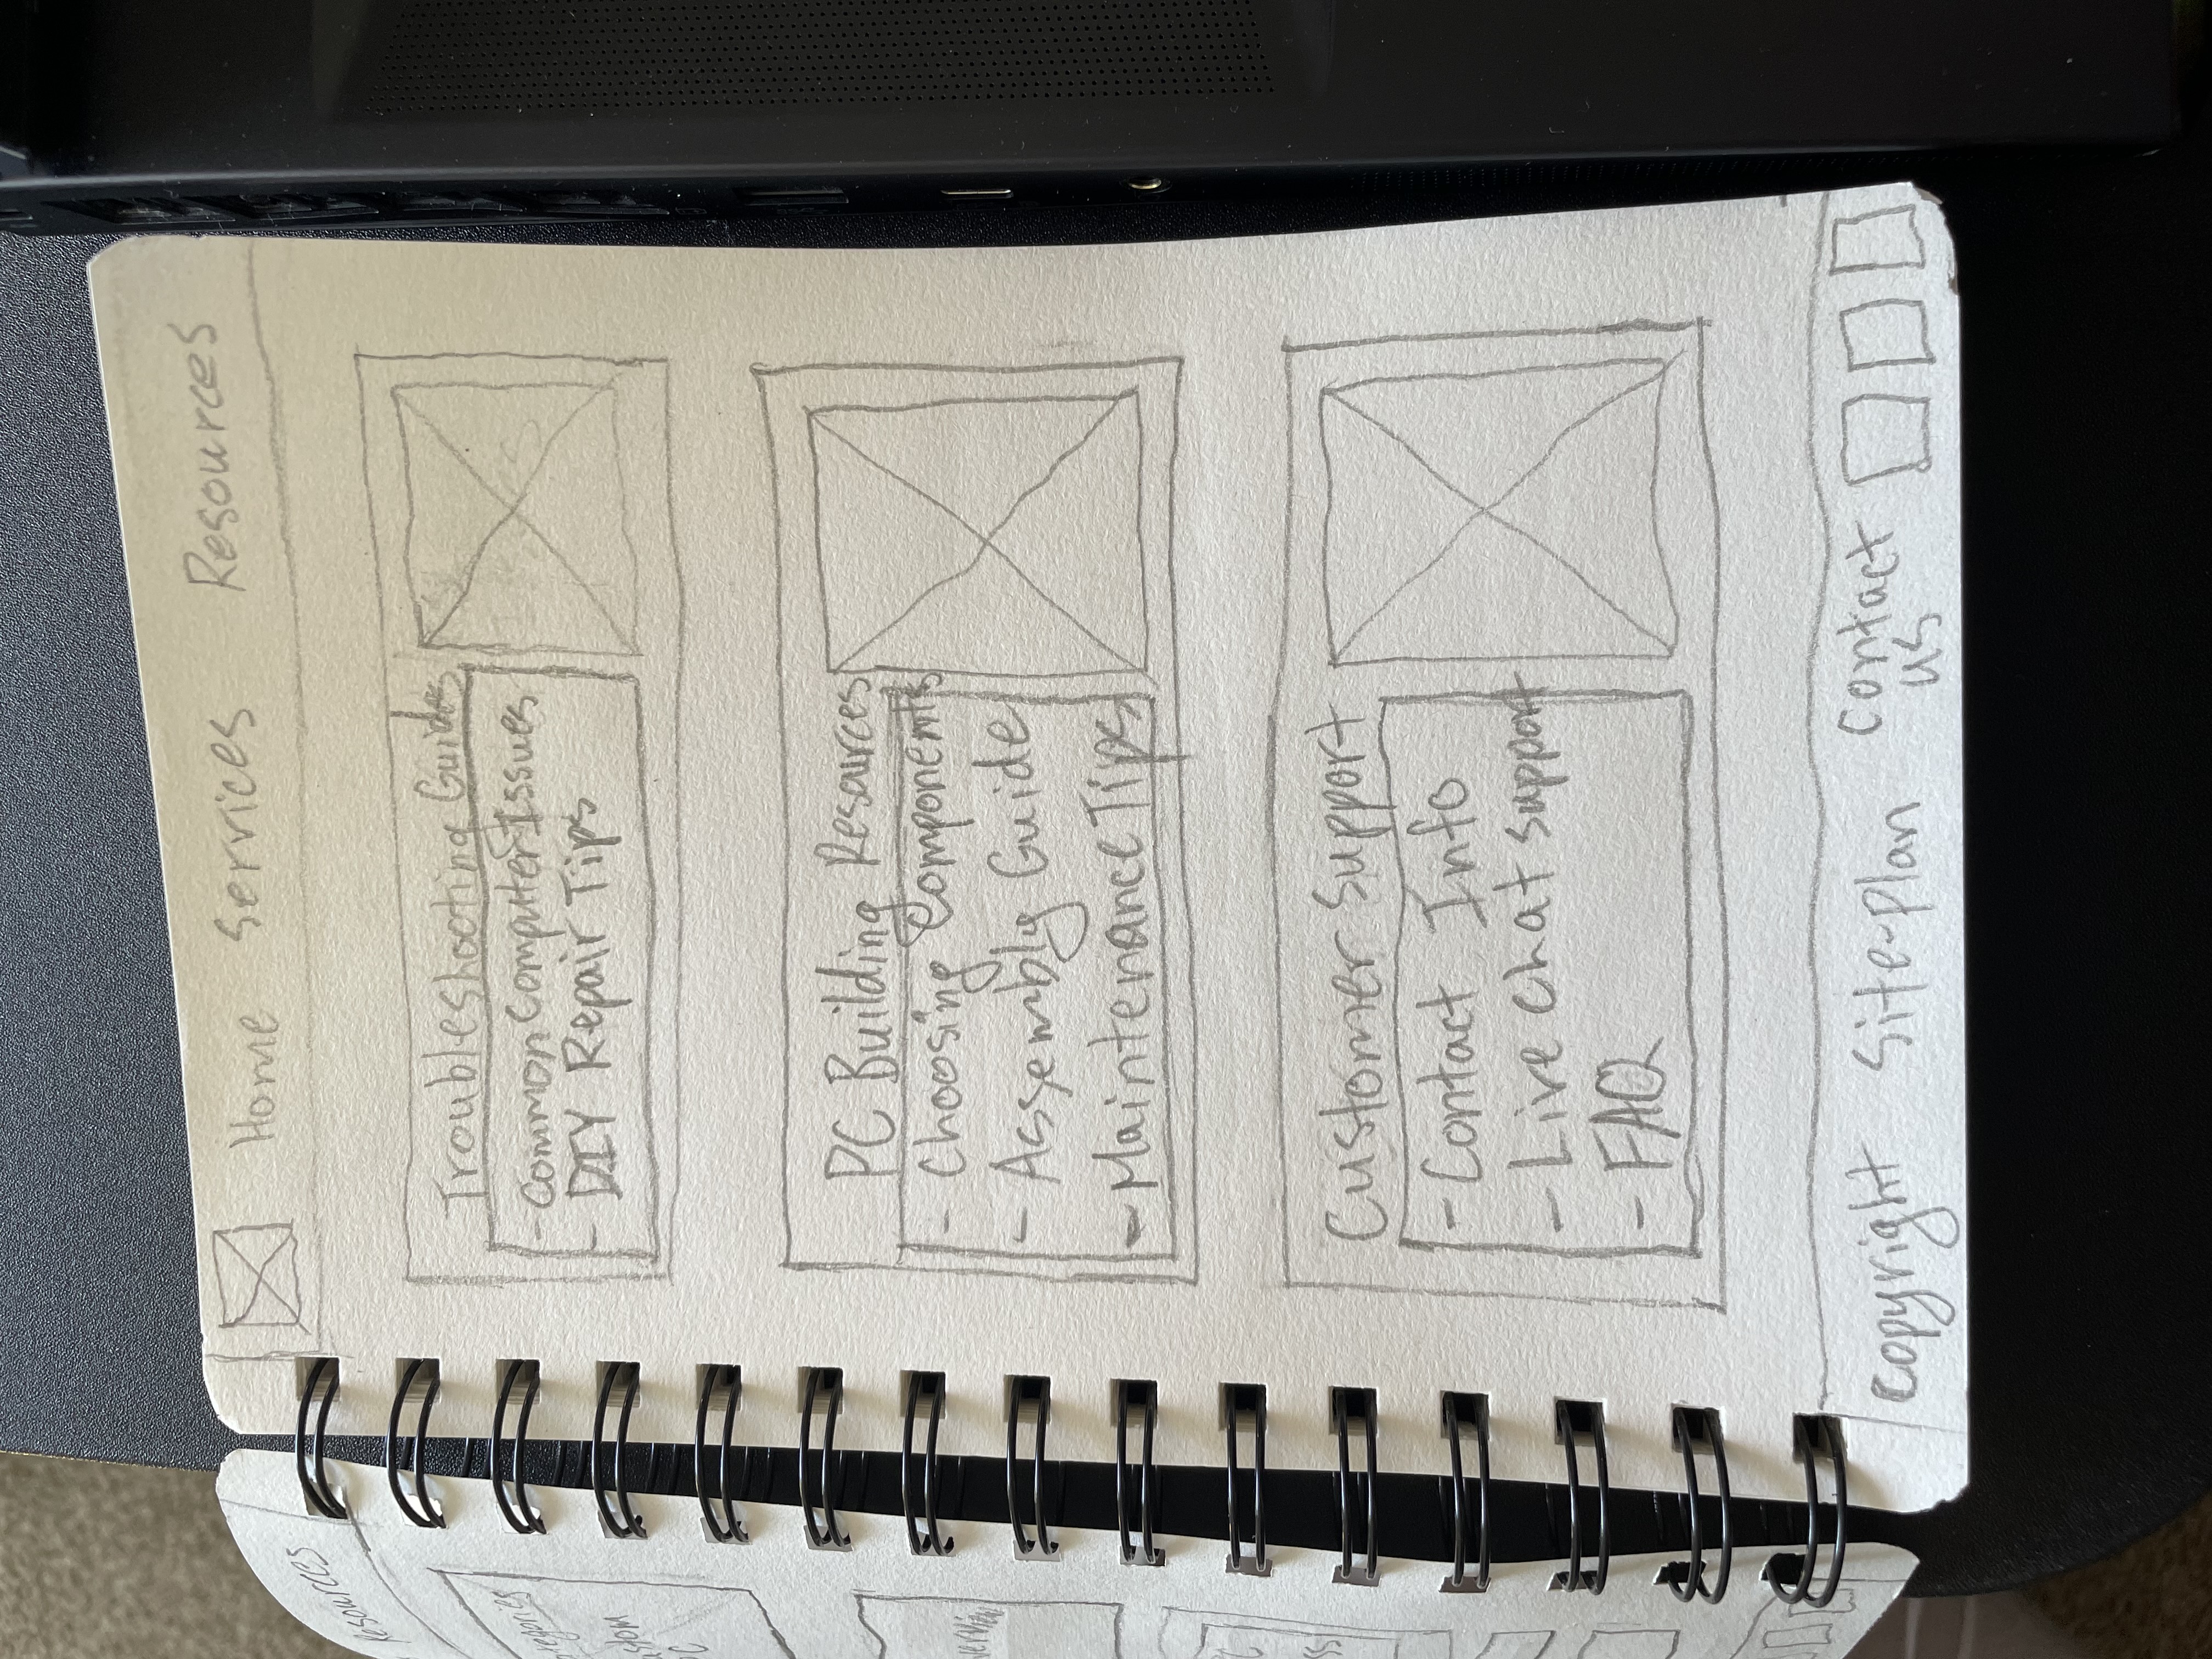 Resources
Home Services Resources
Troubleshooting Guides
- Common Computer Issues
- DIY Repair Tips
PC Building Resources
- Choosing Components
- Assembly Guide
- Maintenance Tips
Customer Support
- Contact Info
- Live chat support
- FAQ
Copyright Site-Plan Contact
us